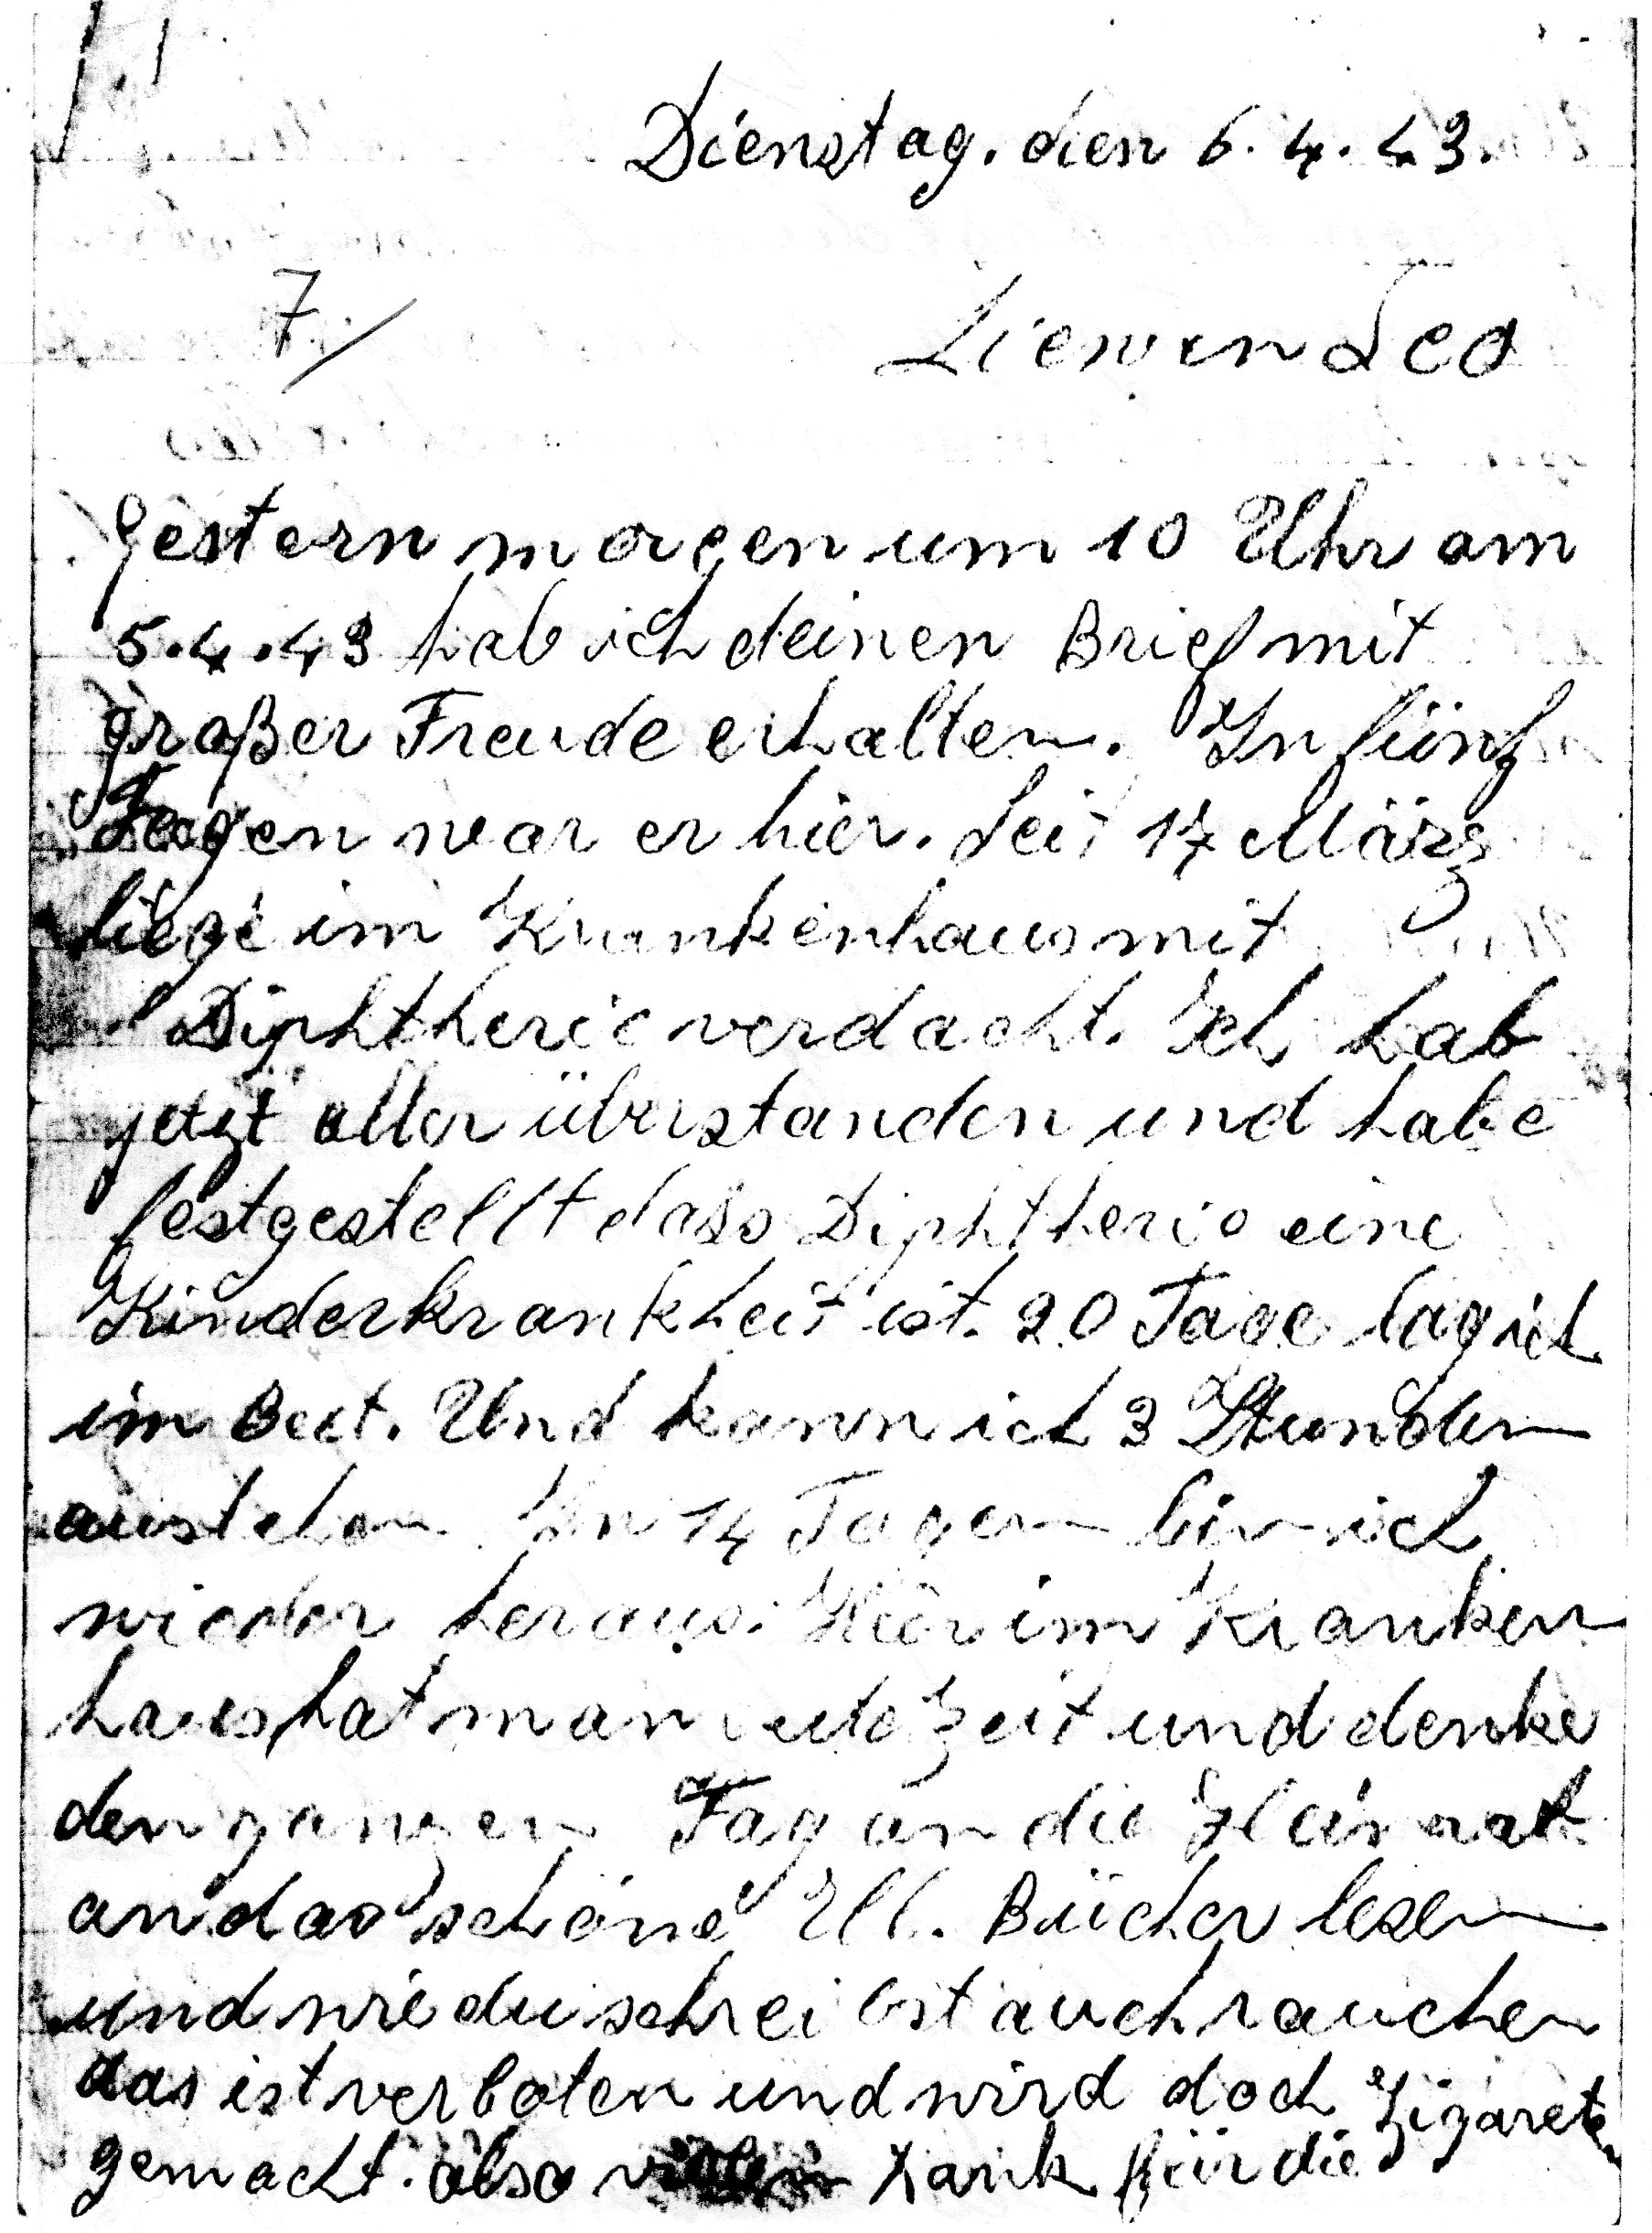 Dienstag. den 6.4.43.
7.
Gestern morgen um 10 Uhr am
5.4.43 hab ich deinen Brief mit
großer Freude erhalten. In fünf
Tagen war er hier. Seit 17 März
liege im Krankenhaus mit
Diphtherie verdacht. Ich hab
jetzt alles überstanden und habe
festgestellt dass Diphtherie eine
Kinderkrankheit ist. 20 Tage lag ich
im Bett. Und kann ich 3 Stunden
aufstehen. In 14 Tagen bin ich
wieder heraus. Hier im Kranken
haus hat man viele Zeit und denke
den ganzen Tag an die Heimat
an das schöne Bücher lesen
und wie du schreibst auch rauchen
das ist verboten und wird doch
gemacht. also vielen Dank für die Zigareten